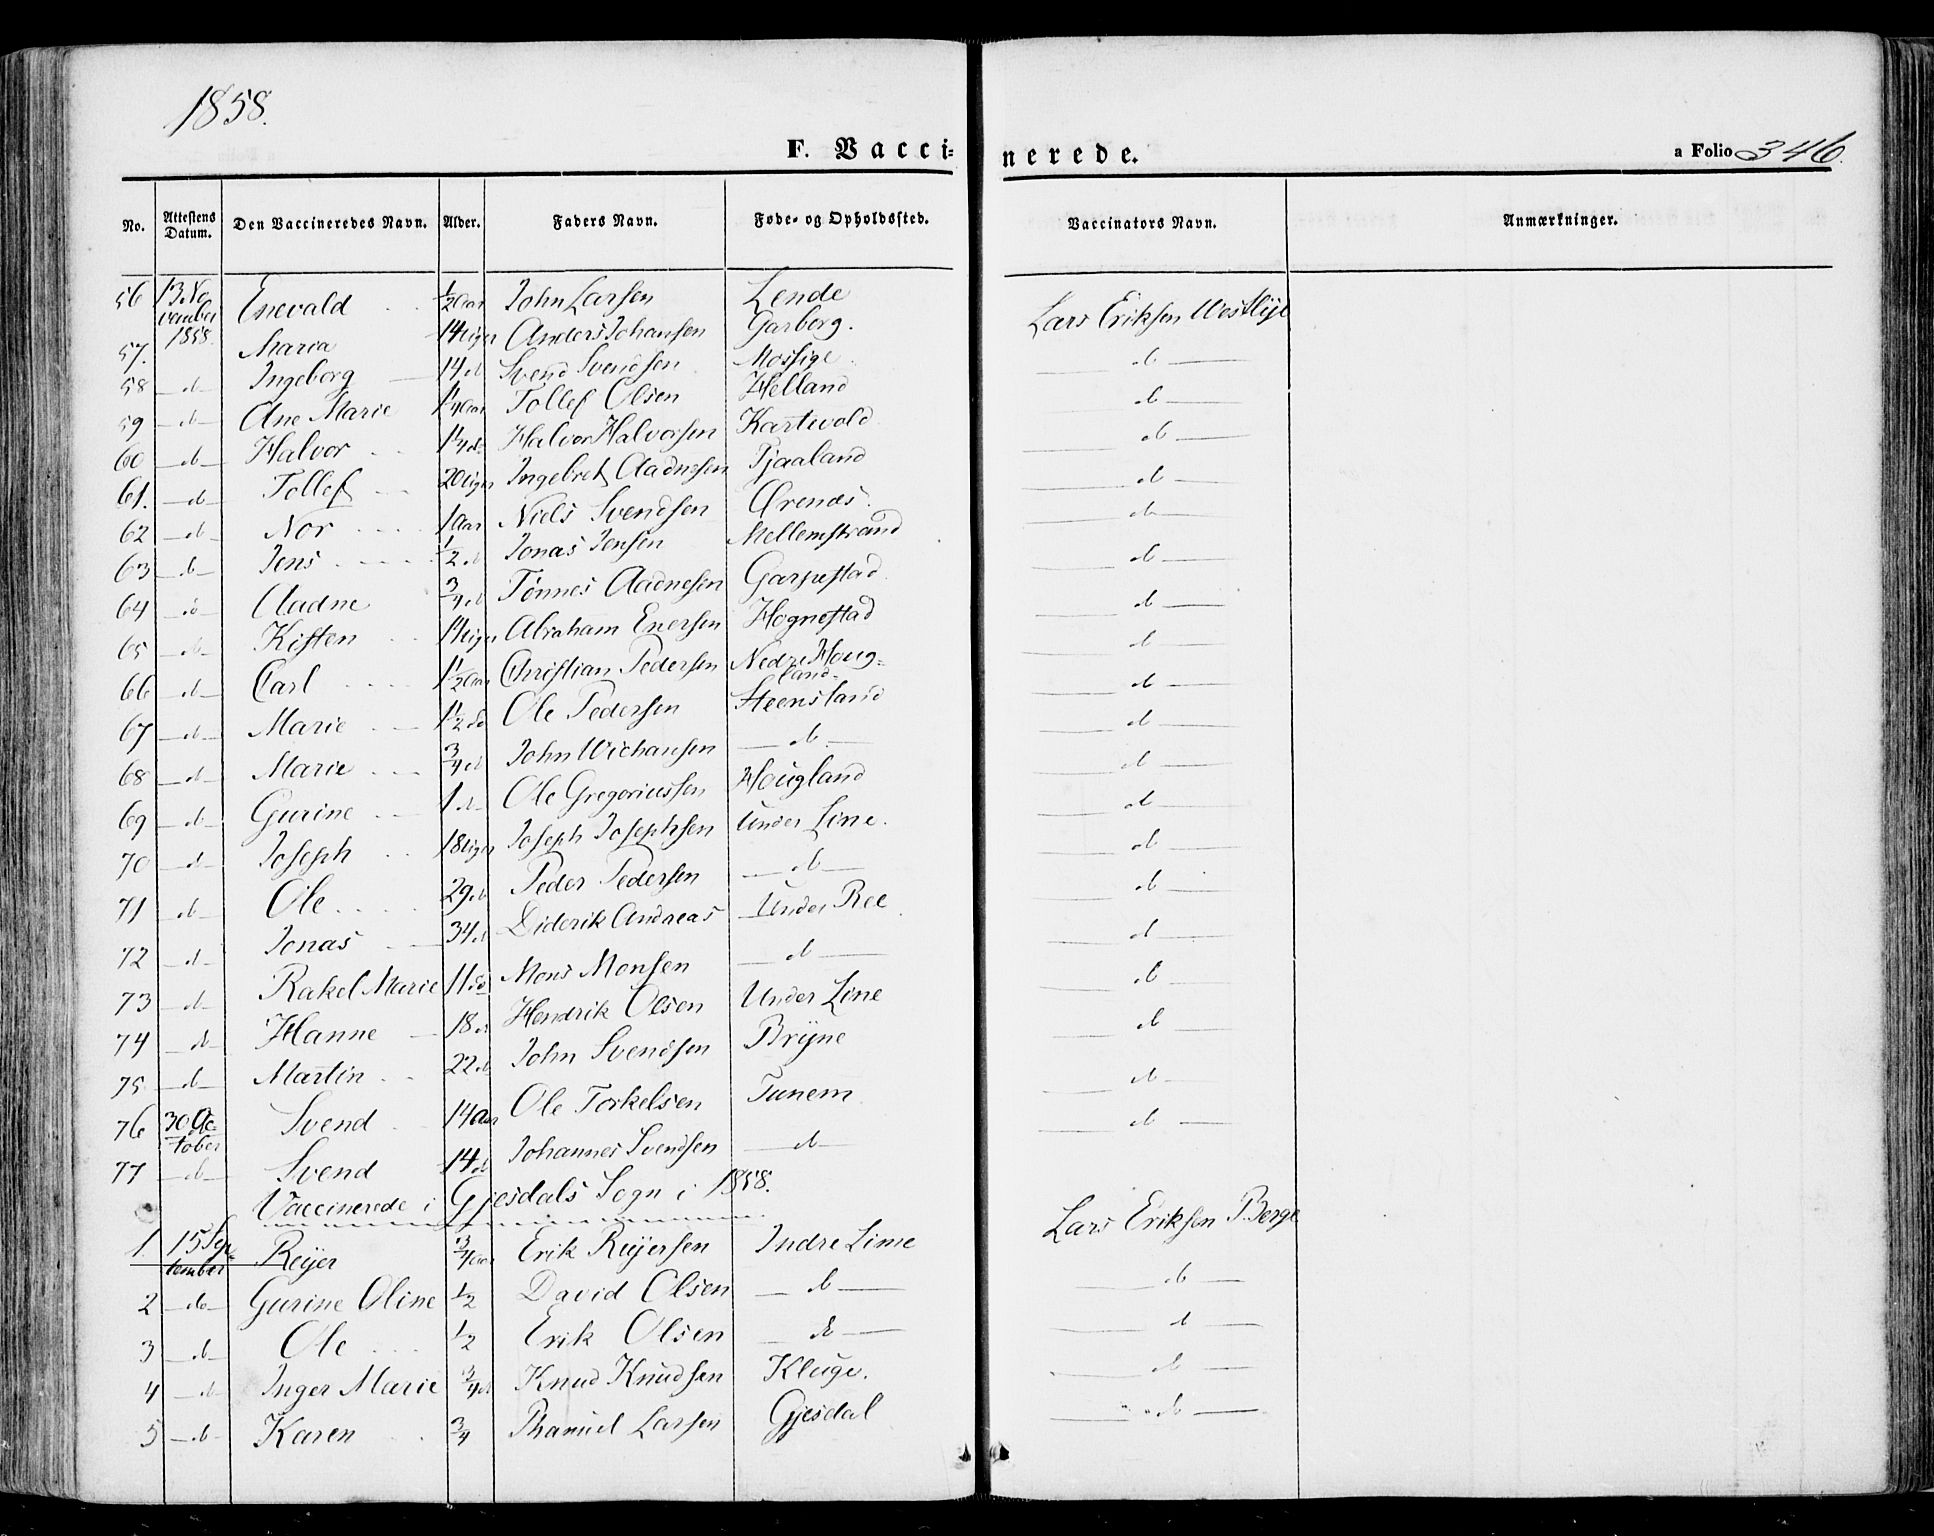 1858.
F. Vaccinerede.
a Folio 346.
No. Attestens Datum. Den Vaccineredes Navn. Alder. Faders Navn. Føde- og Opholdssted. Vaccinators Navn. Anmærkninger.
56 13 November 1858. Enevald 1/2 Aar John Larsen Lende Lars Eriksen Westlye
57. Maria 14 Uger Anders Johansen Garborg. do
58 do Ingeborg 14 do Svend Svendsen Mossige do
59 do Ane Marie 1 1/4 Aar Tollef Olsen Helland do
60 do Halvor 1 1/4 do Halvor Halvorsen Kartevold do
61. do Tollef 20 Uger Ingebret Aadnesen Tjaaland do
62 do Nor 1 Aar Niels Svendsen Ørenæs. do
63 do Jens 1/2 do Jonas Jensen Mellemstrand do
64 do Aadne 3/4 do Tønnes Aadnesen Garpestad do
65 do Kisten 14 Uger Abraham Enersen Hognestad do
66 do Carl 1 1/2 Aar Christian Pedersen Nedre Hougland do
67 do Marie 1 1/2 do Ole Pedersen Steensland do
68 do Marie 3/4 do John Wichansen do do
69 do Gurine 1 do Ole Gregoriussen Hougland do
70 do Joseph 18 Uger Joseph Josephsen Under Line. do
71 do Ole 29 do Peder Pedersen do do
72 do Jonas 34 do Diderik Andreas Under Ree do
73 do Rakel Marie 11 do Mons Monsen do do
74 do Hanne 18 do Hendrik Olsen Under Line do
75 do Martin 22 do John Svendsen Bryne do
76 30 October Svend 14 Aar Ole Torkelsen Tunem do
77 do Svend 14 do Johannes Svendsen do do
Vaccinerede i Gjesdals Sogn i 1858.
1. 15 September Reijer 3/4 Aar Erik Reijersen Indre Lime Lars Eriksen P. Berge
2 do Gurine Oline 1/2 David Olsen do do
3 do Ole 1/2 Erik Olsen do do
4 do Inger Marie 3/4 do Knud Knudsen Kluge. do
5 do Karen 3/4 Thanuel Larsen Gjesdal do